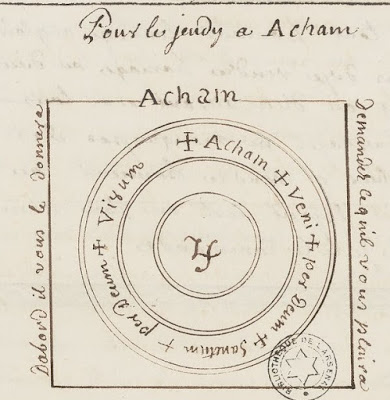 Pour le jeudy a Acham
Acham
✝ Acham + Veni + per Deum + Sanctum + per Deum + Vivum
Dabord il vous le donnera
Demandez ce qu'il vous plaira
BIBLIOTHEQUE DE L'ARSENAL